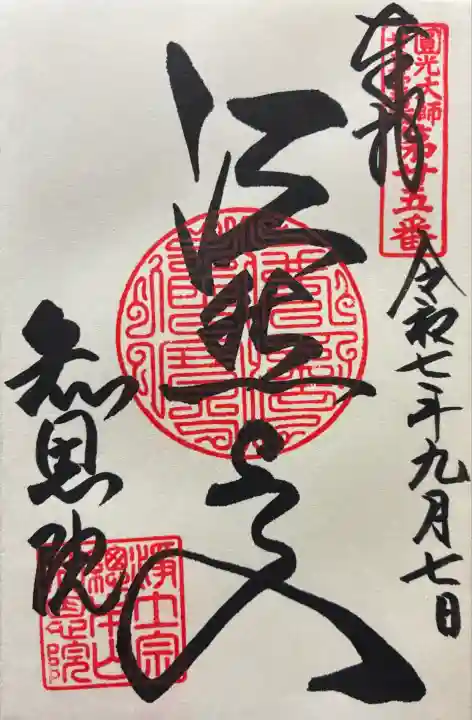 奉拝
圓光大師
第廿五番
令和七年九月七日
法然上人
知恩院
浄土宗
總本山
知恩院